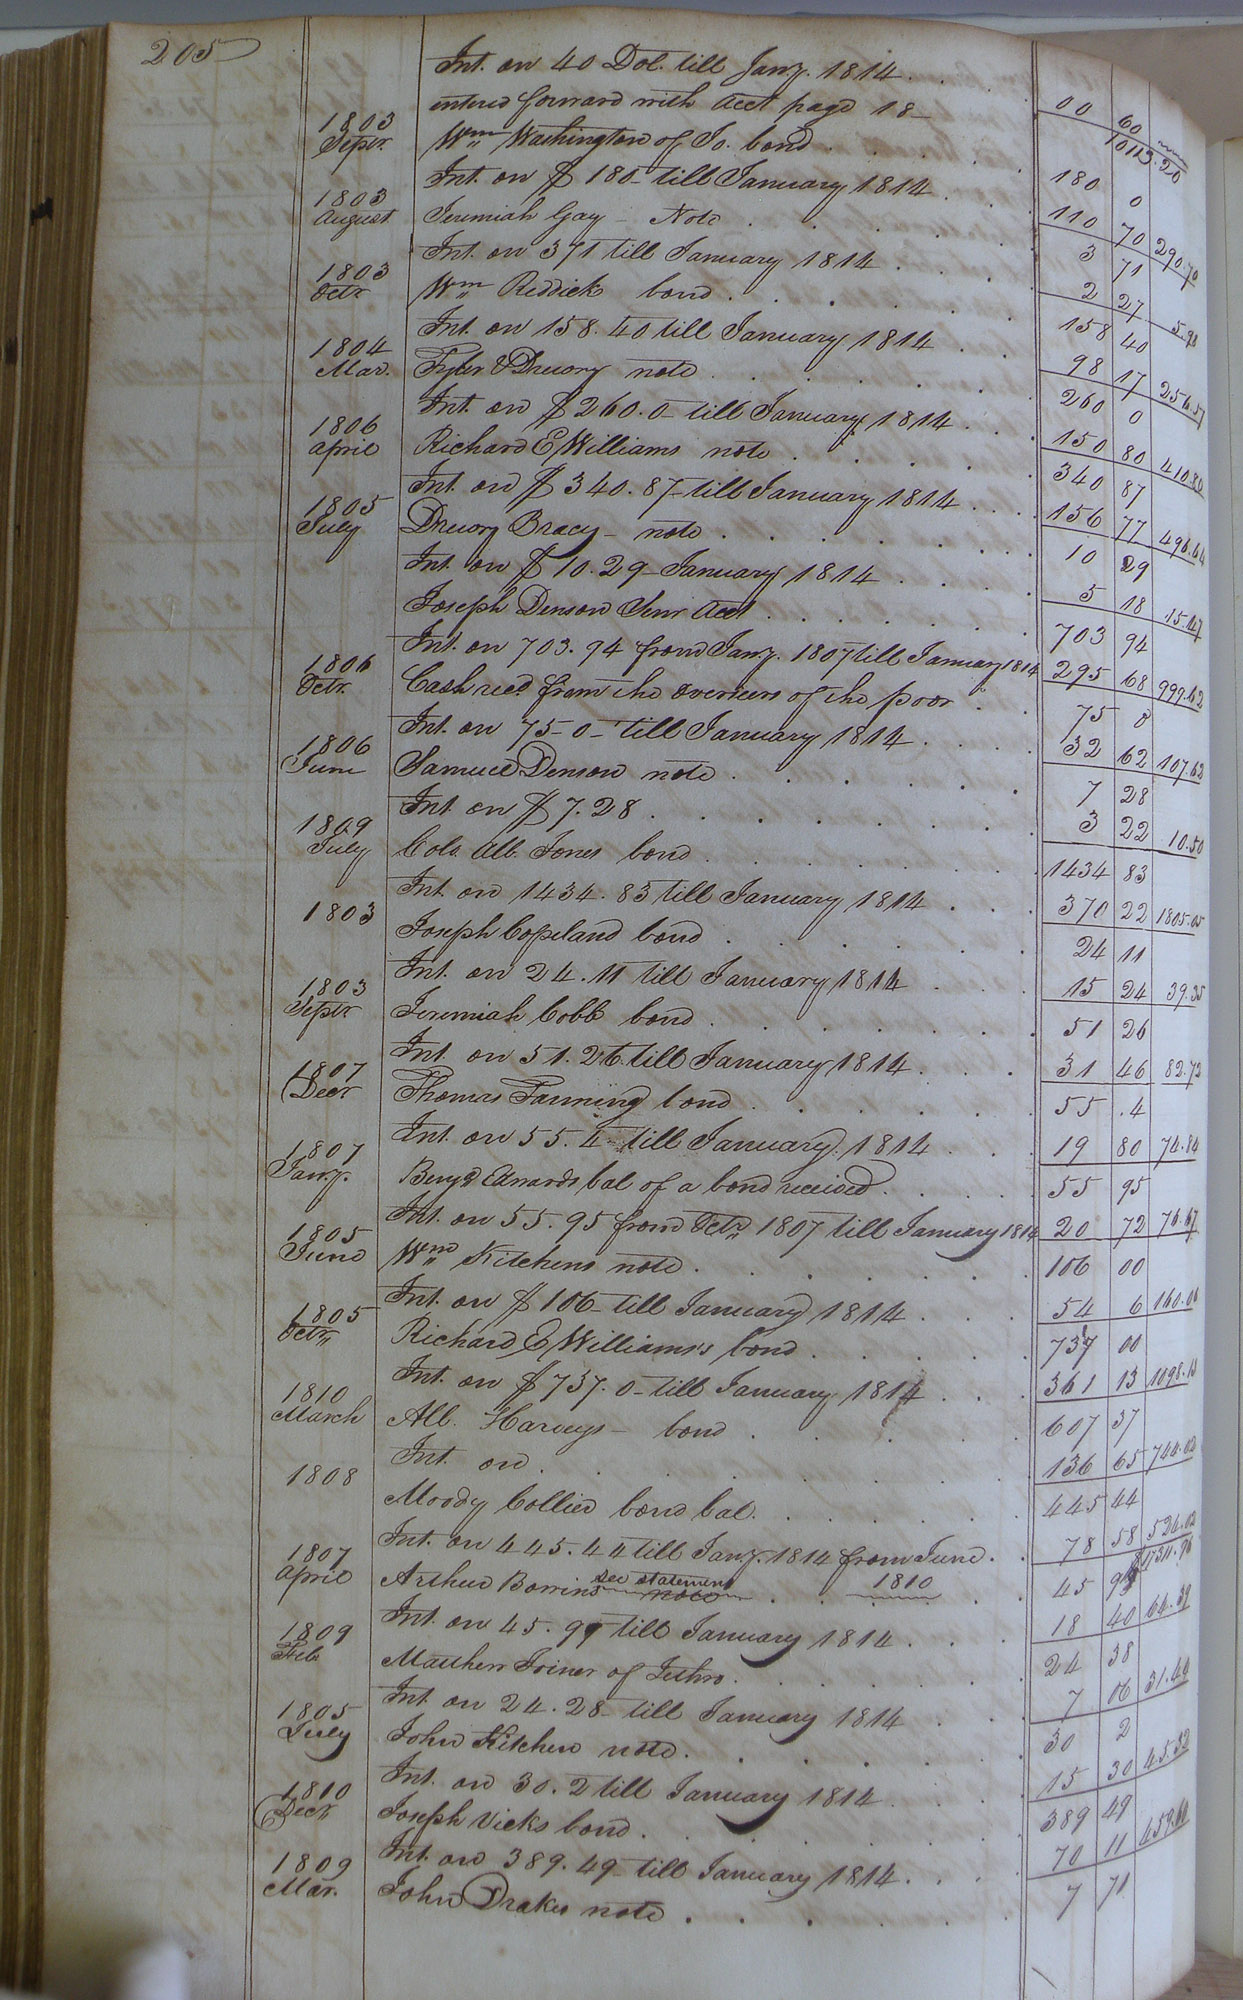 205
Int. on 40 Dol. till Jany. 1814 . .
entered forward with Acct page 18 - 00 60 10113.20
1803 Septr. Wm Washington of Jo. bond . . . .
Int. on $ 180 - till January 1814 . . 180 0
1803 August Jeremiah Gay - Note . . . . 110 70 290.70
Int. on 3/71 till January 1814 . . . 3 71
1803 Octr Wm Reddick bond . . . . 2 27 5.98
Int. on 158.40 till January 1814 . . 158 40
1804 Mar. Tyler & Drewry note . . . . 98 17 256.57
Int. on $ 260.0 - till January 1814 . . 260 0
1806 April Richard E Williams note . . . . 150 80 410.80
Int. on $ 340.87 - till January 1814 . . . 340 87
1805 July Drewry Bracy - note . . . . . 156 77 496.64
Int. on $ 10.29 - January 1814 . . . 10 29
Joseph Denson Senr Acct . . . . . 5 18 15.47
Int. on 703.94 from Jany. 1807 till January 1814 703 94
1806 Octr. Cash recd from the overseers of the poor . . 295 68 999.62
Int. on 75 - 0 - till January 1814 . . . . 75 0
1806 June Samuel Denson note . . . . . 32 62 107.62
Int. on $ 7.28 . . . . . . 7 28
1809 July Colo. Alb. Jones bond . . . . . 3 22 10.50
Int. on 1434.83 till January 1814 . . . 1434 83
1803 Joseph Copeland bond . . . . . 370 22 1805.05
Int. on 24.11 till January 1814 . . . 24 11
1803 Septr Jeremiah Cobb bond . . . . . 15 24 39.35
Int. on 51.26 till January 1814 . . . 51 26
1807 Decr Thomas Fanning bond . . . . . 31 46 82.72
Int. on 55.4 - till January 1814 . . . 55 .4
1807 Jany. Benjn Edwards bal of a bond received . . . . 19 80 74.84
Int. on 55.95 from Octr 1807 till January 1814 55 95
1805 June Wm Kitchens note . . . . . 20 72 76.67
Int. on $ 106 - till January 1814 . . . 106 00
1805 Octr Richard E Williams's bond . . . . . 54 6 160.06
Int. on $ 737.0 - till January 1814 . . . 737 00
1810 March Alb. Harveys - bond . . . . . 361 13 1098.13
Int. on . . . . . . 607 37
1808 Moody Collier bond bal. . . . . . 136 65 744.02
Int. on 445.44 till Jany. 1814 from June . 445 44
1810
1807 April Arthur Bowins see statement note . . . . . 78 58 524.02
Int. on 45.99 till January 1814 . . . 45 99
1809 Feb. Matthew Joiner of Jethro . . . . . 18 40 64.39
Int. on 24.28 - till January 1814 . . . 24 38
1805 July John Kitchen note . . . . . 7 06 31.44
Int. on 30.2 till January 1814 . . . 30 2
1810 Decr Joseph Vicks bond . . . . . 15 30 45.32
Int. on 389.49 - till January 1814 . . . 389 49
1809 Mar. John Drakes note . . . . . 70 11 459.60
7 71